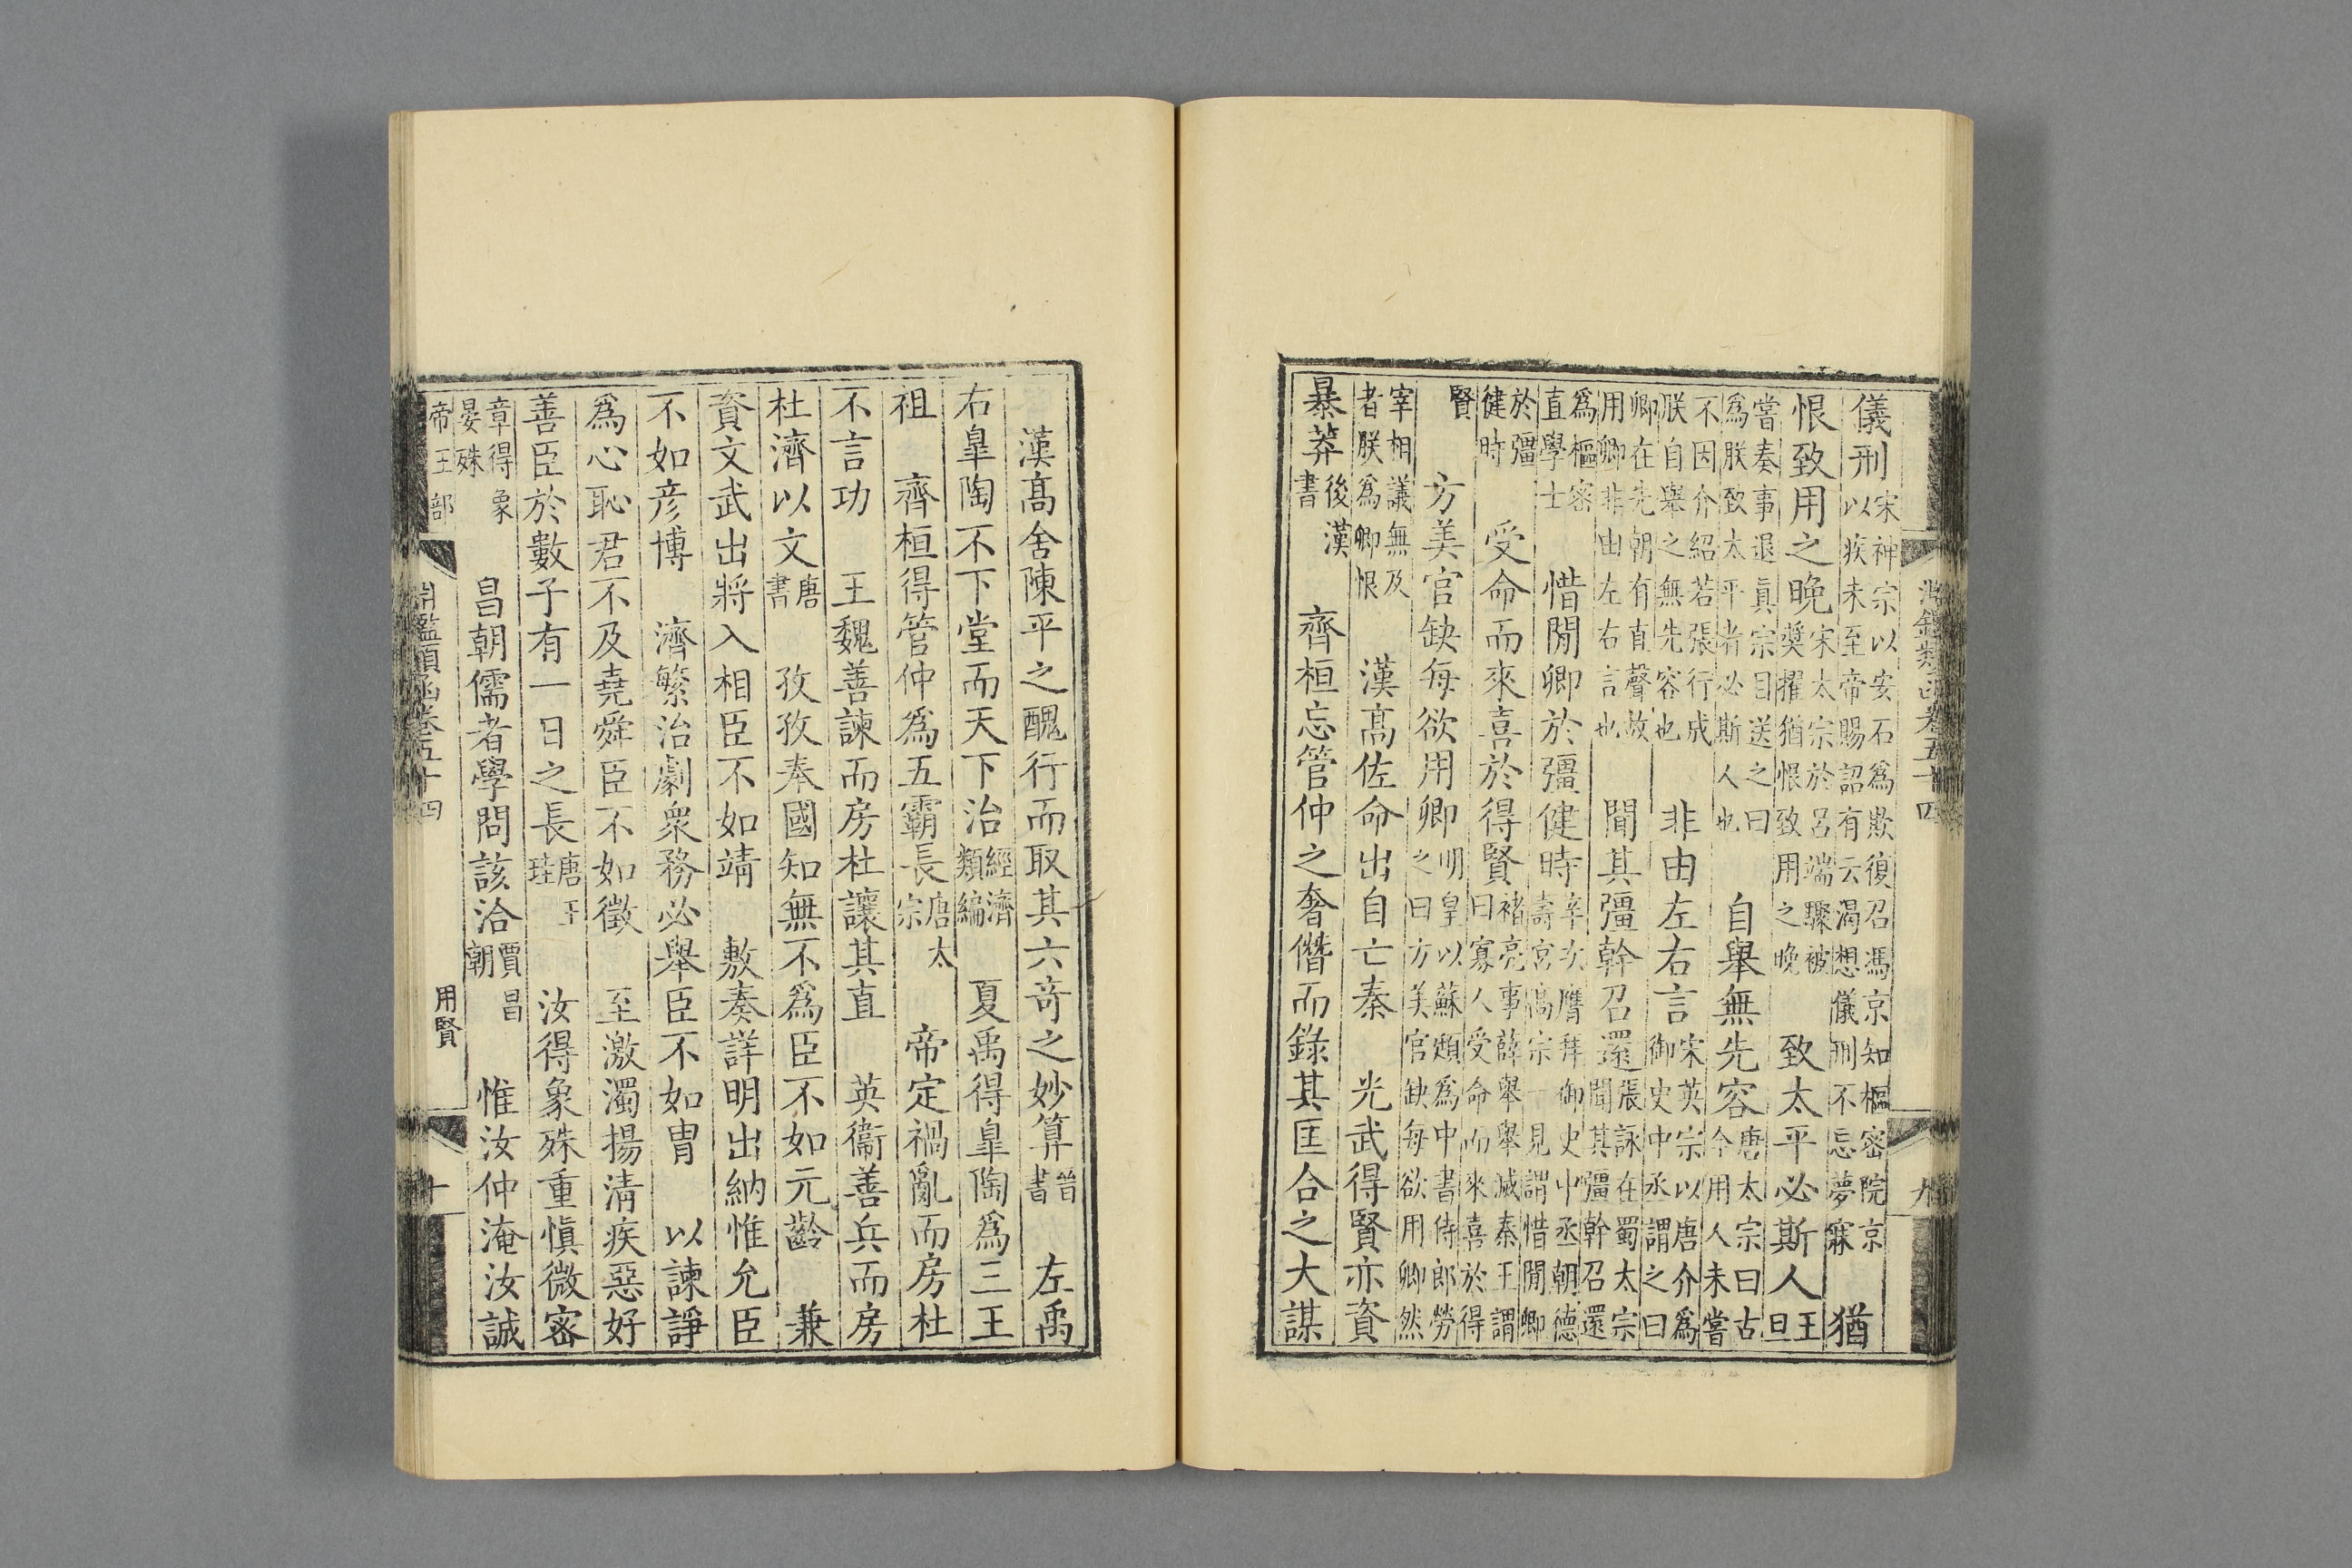 淵鑑類函卷五十四 九
儀刑宋神宗以安石爲欺復召馮京知樞密院京以疾未至帝賜詔有云渴想儀刑不忘夢寐 猶
恨致用之晚宋太宗於呂端驟被奬擢猶恨致用之晚 致太平必斯人王旦
嘗奏事退真宗目送之曰爲朕致太平者必斯人也 自舉無先容唐太宗曰古今用人未嘗
不因介紹若張行成朕自舉之無先容也 非由左右言宋英宗以唐介爲御史中丞謂之曰
卿在先朝有直聲故用卿非由左右言也 聞其彊幹召還張詠在蜀太宗聞其彊幹召還
爲樞密直學士 惜閒卿於彊健時辛次膺拜御史中丞朝德壽宮高宗一見謂惜閒卿
於彊健時 受命而來喜於得賢褚亮事薛舉舉滅秦王謂曰寡人受命而來喜於得
賢 方美官缺每欲用卿明皇以蘇頲爲中書侍郎勞之曰方美官缺每欲用卿然
宰相議無及者朕爲卿恨 漢高佐命出自亡秦 光武得賢亦資
暴莽後漢書 齊桓忘管仲之奢僭而錄其匡合之大謀
漢高舍陳平之醜行而取其六奇之妙算晉書 左禹
右臯陶不下堂而天下治經濟類編 夏禹得臯陶爲三王
祖 齊桓得管仲爲五霸長唐太宗 帝定禍亂而房杜
不言功 王魏善諫而房杜讓其直 英衞善兵而房
杜濟以文唐書 孜孜奉國知無不爲臣不如元齡 兼
資文武出將入相臣不如靖 敷奏詳明出納惟允臣
不如彦博 濟繁治劇衆務必舉臣不如胄 以諫諍
爲心恥君不及堯舜臣不如徵 至激濁揚清疾惡好
善臣於數子有一日之長唐王珪 汝得象殊重愼微密
章得象晏殊 昌朝儒者學問該洽賈昌朝 惟汝仲淹汝誠
帝王部 淵鑑類函卷五十四 用賢 十